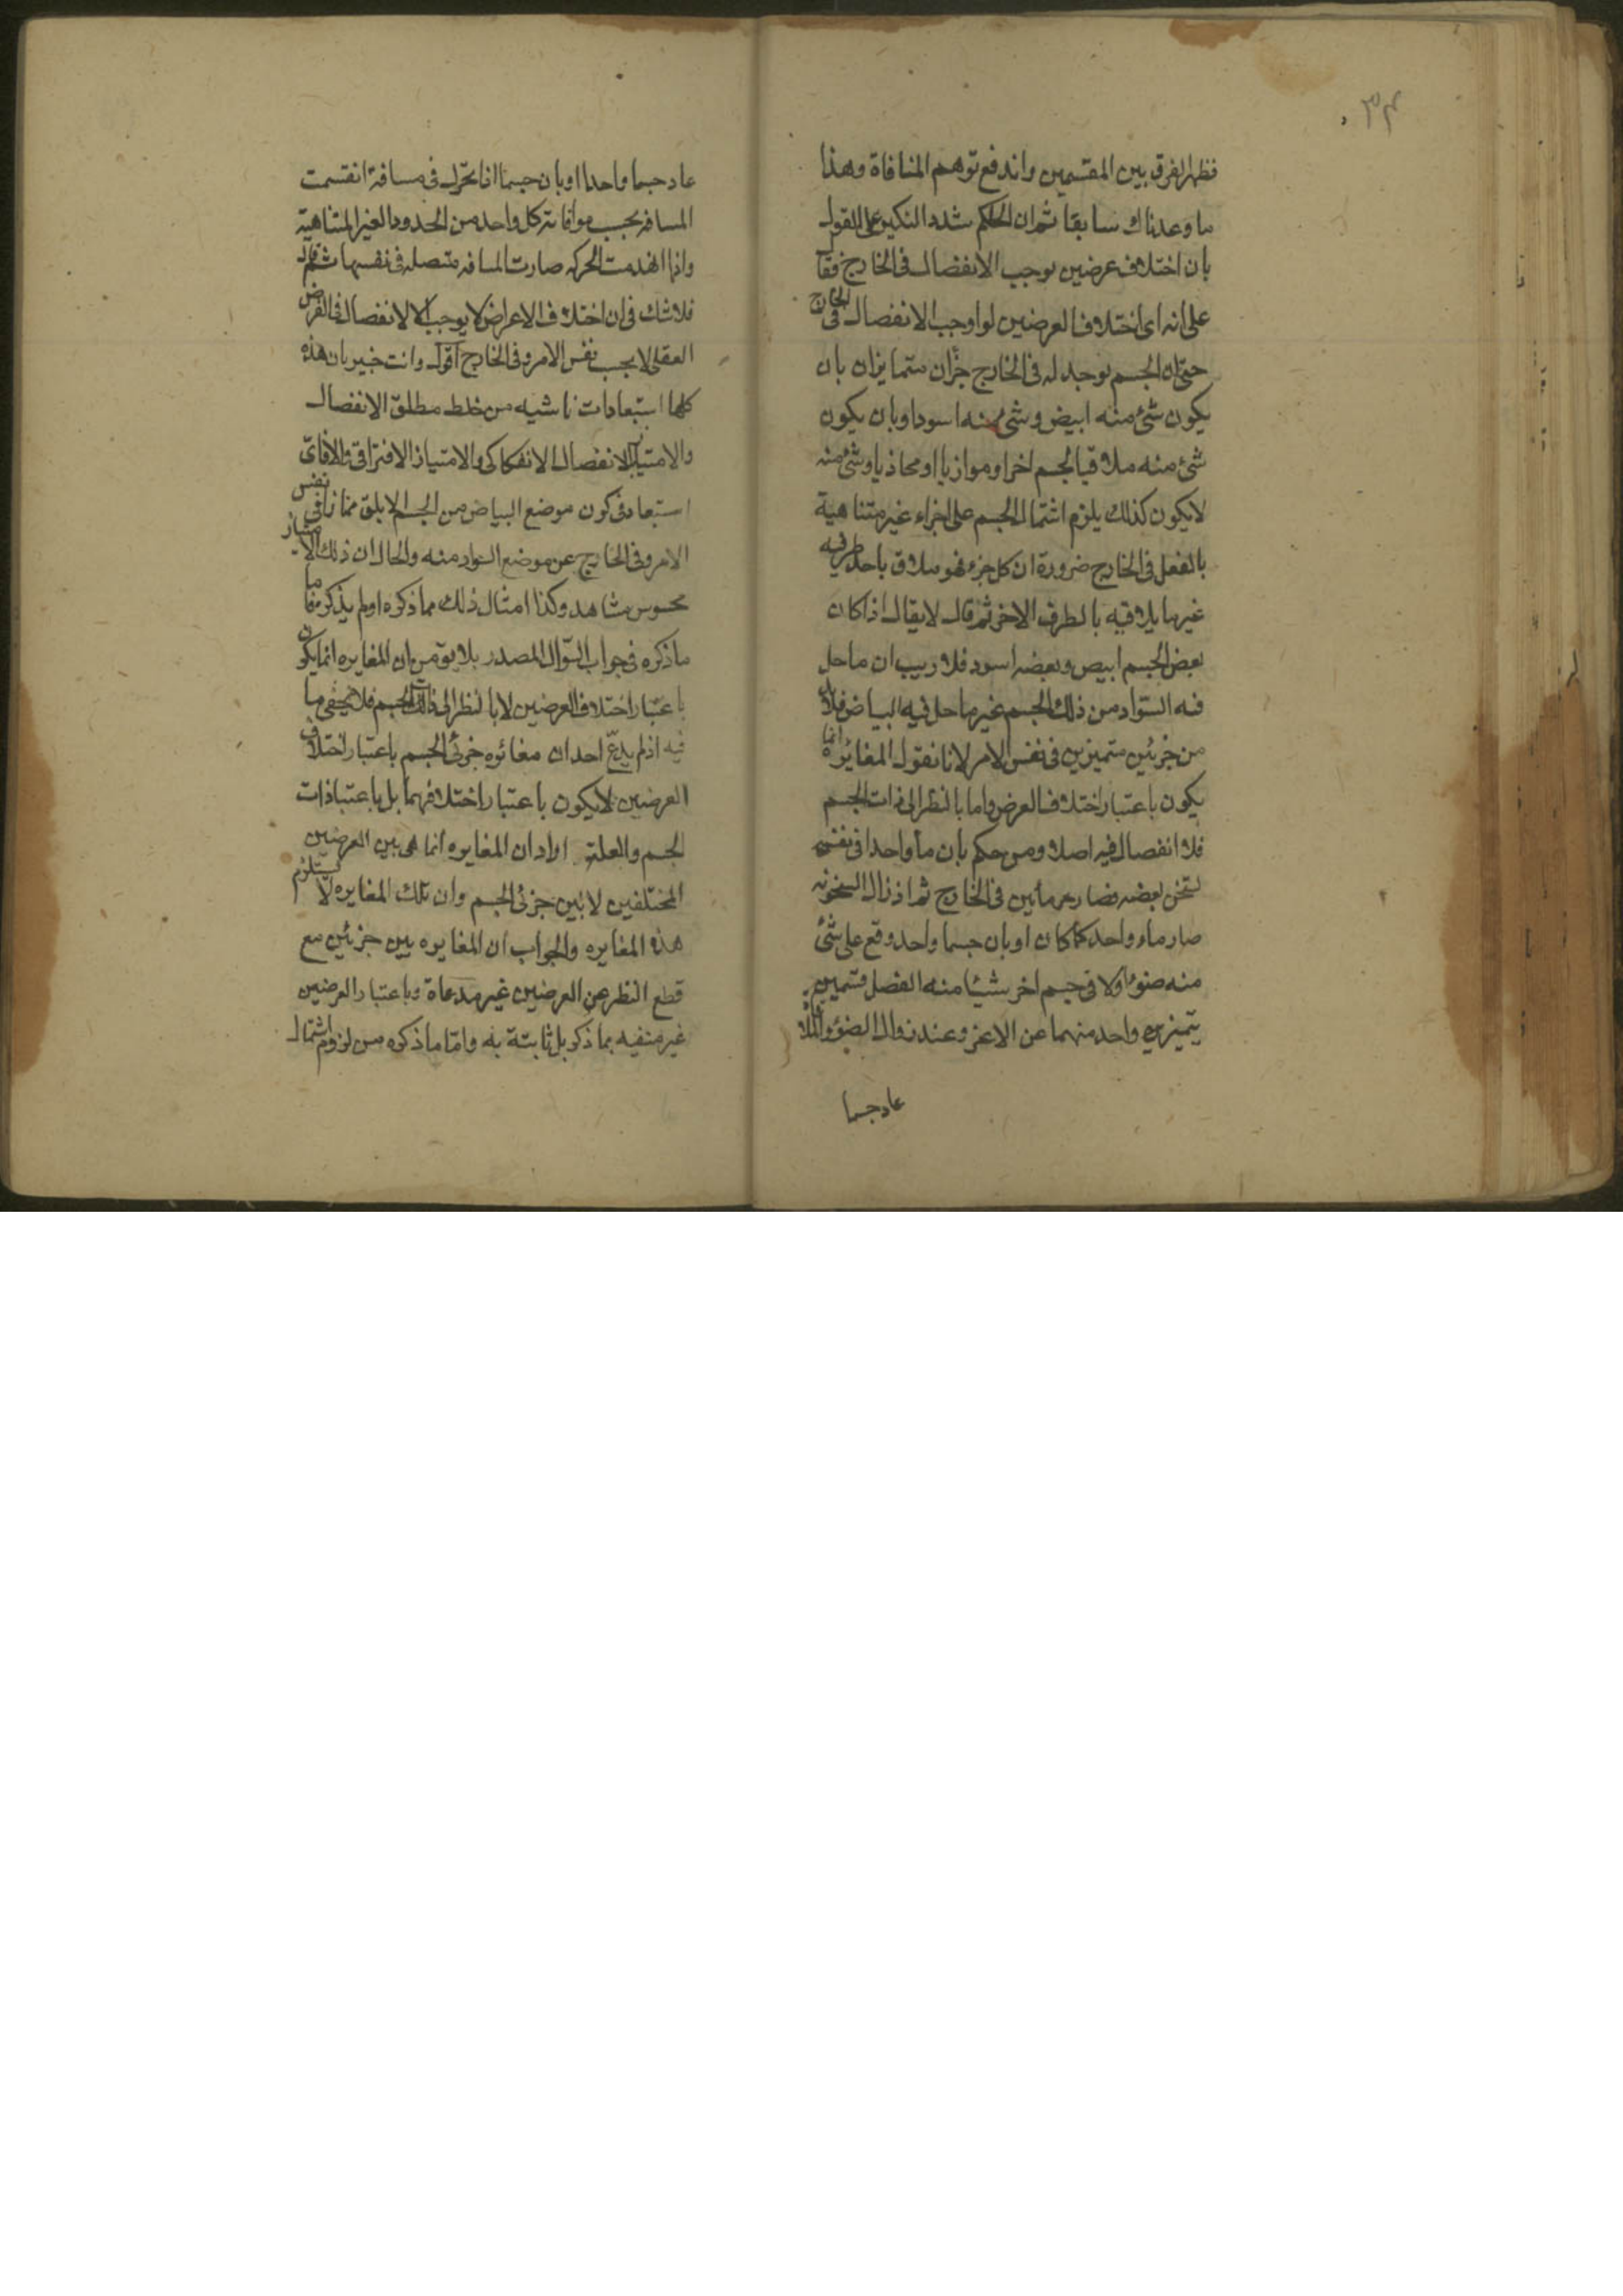 ۳۴
فظهر الفرق بين المقسمين واندفع توهم المنافاة وهذا
ما وعدناك سابقا ثم ان الحكم شدد النكير على القول
بان اختلاف عرضين يوجب الانفصال فى الخارج فقا
على انه اى اختلاف العرضين لو اوجب الانفصال فى الخارج
حتى ان الجسم يوجد له فى الخارج جزأن متمايزان بان
يكون شئ منه ابيض وشئ منه اسود او بان يكون
شئ منه ملاقيا لجسم اخر او موازيا او محاذيا وشئ منه
لا يكون كذلك يلزم اشتمال الجسم على اجزاء غير متناهية
بالفعل فى الخارج ضرورة ان كل جزء فهو ملاق باحد طرفيه
غير ما يلاقيه بالطرف الاخر ثم قال لا يقال اذا كان
بعض الجسم ابيض وبعضه اسود فلا ريب ان ما حل
فيه السواد من ذلك الجسم غير ما حل فيه البياض فلا بد
من جزئين متميزين فى نفس الامر لانا نقول المغايره انما
يكون باعتبار اختلاف العرض واما بالنظر الى ذات الجسم
فلا انفصال فيه اصلا ومن حكم بان مأ واحدا فى نفسه
تسخن بعضه فصار مائين فى الخارج ثم اذ زال السخونه
صار ماء واحد كما كان او بان جسما واحد وقع على شئ
منه ضوء او لاقى جسم اخر شيئا منه انفصل قسمين
يتميز واحد منهما عن الاخر وعند زوال الضوء والملاقاة
عاد جسما
عاد جسما واحدا او بان جسما اذا تحرك فى مسافة انقسمت
المسافه بحسب موافاته كل واحد من الحدود الغير المتناهية
واذا انعدمت الحركه صارت المسافه متصله فى نفسها ثم قال
فلا شك فى ان اختلاف الاعراض لا يوجب الا الانفصال فى الفرض
العقلى لا بحسب نفس الامر وفى الخارج اقول وانت خبير بان هذه
كلها استبعادات ناشيه من خلط مطلق الانفصال
والامتياز بالانفصال الانفكاكى والامتياز الافتراقى
استبعاد فى كون موضع البياض من الجسم الابلق ممتازا فى نفس
الامر وفى الخارج عن موضع السواد منه والحال ان ذلك الامتياز
محسوس مشاهد وكذا امثال ذلك مما ذكره او لم يذكره فاما
ما ذكره فى جواب السؤال المصدر بلا يق من ان المغايره انما يكون
باعتبار اختلاف العرضين لا بالنظر الى ذات الجسم فلا يخفى ما
فيه اذ لم يدع احد ان مغائره جزئى الجسم باعتبار اختلاف
العرضين لا يكون باعتبار اختلافهما بل باعتبار ذات
الجسم والعله اراد ان المغايره انما هى بين العرضين
المختلفين لا بين جزئى الجسم وان تلك المغايره لا يستلزم
هذه المغايره والجواب ان المغايره بين جزئين مع
قطع النظر عن العرضين غير مدعاة وباعتبار العرضين
غير منفيه بما ذكر بل ثابتة به واما ما ذكره من لزوم اشتمال